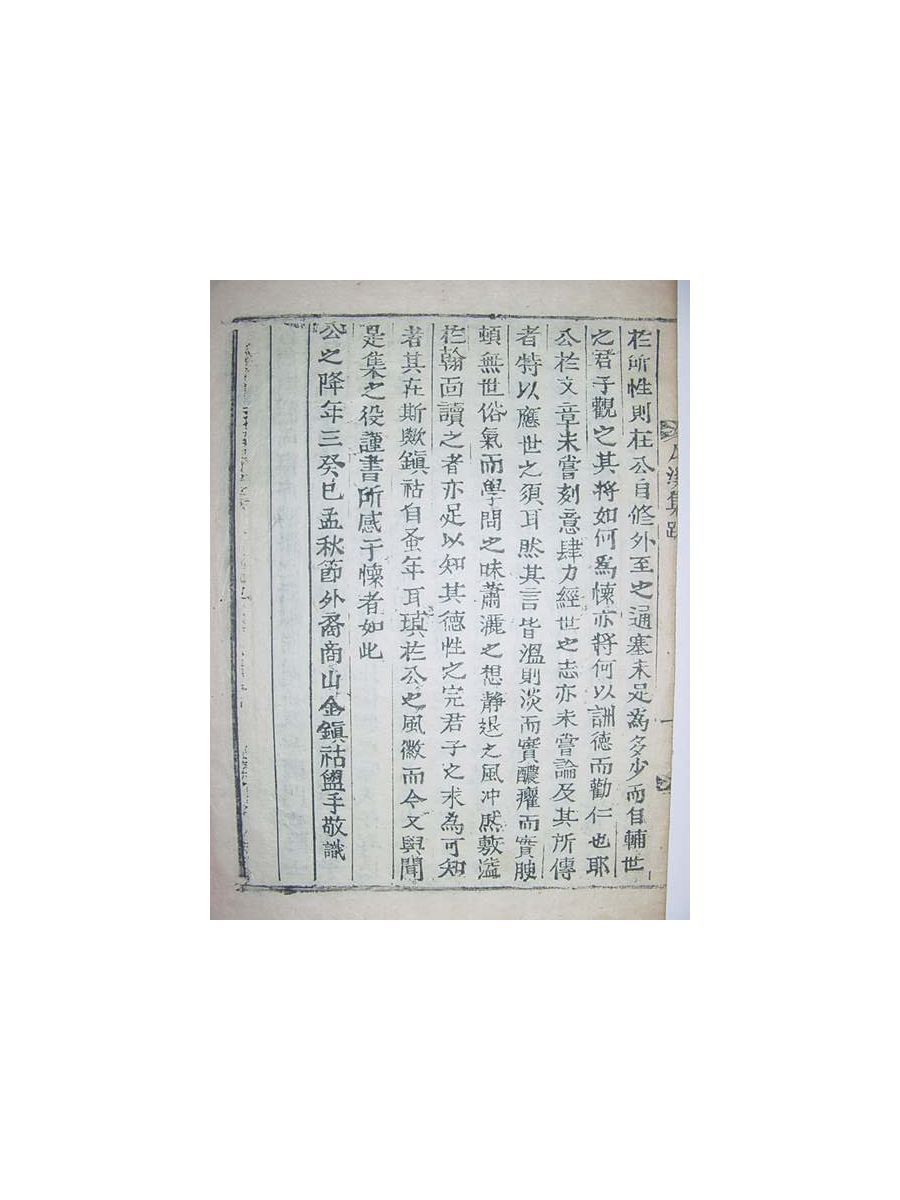 集跋
於所性則在公自修外至之通塞未足為多少而自輔世
之君子觀之其将如何為懐亦将何以詶徳而勸仁也耶
公於文章未嘗刻意肆力經世之志亦未嘗論及其所傳
者特以應世之須耳然其言皆溫則淡而實醲癯而實腴
頓無世俗氣而學問之味蕭灑之想静退之風冲然藪溢
於翰面讀之者亦足以知其德性之完君子之未為可知
者其在斯歟鎭祜自蚤年耳瑱於公之風徽而今又與聞
是集之役謹書所感于懐者如此
公之降年三癸巳孟秋節外裔商山金鎭祜盥手敬識